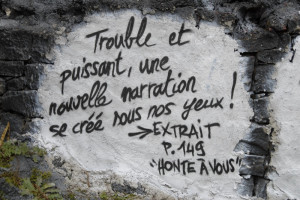 Trouble et
puissant, une
nouvelle narration
se créé sous nos yeux !
→ EXTRAIT
P. 149
"HONTE À VOUS"